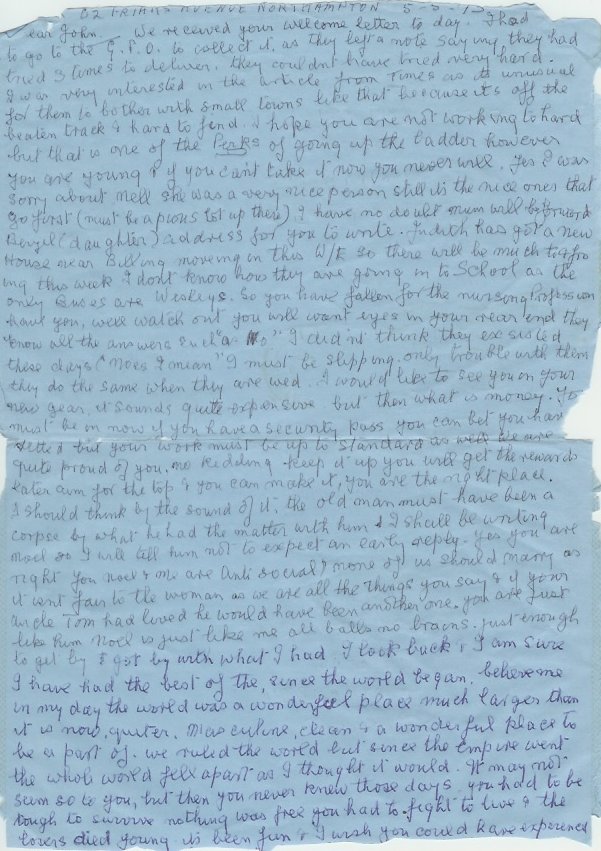 62 AVENUE NORTHAMPTON 5-5-
ear John. We received your welcome letter to day. I had
to go to the G.P.O. to collect it, as they left a note saying they had
tried 3 times to deliver, they couldnt have tried very hard.
I was very interested in the article from Times as its unusual
for them to bother with small towns like that because its off the
beaten track & hard to find. I hope you are not working to hard
but that is one of the Perks of going up the ladder however
you are young & if you cant take it now you never will. Yes I was
sorry about Nell she was a very nice person still its the nice ones that
go first (must be a pious lot up there) I have no doubt mum will forward
(daughter) address for you to write. Judith has got a new
House near Billing moving in this W/E so there will be much to & fro
ing this week I dont know how they are going in to School as the
only Buses are Wesleys. So you have fallen for the nursing Profession
have you, well watch out you will want eyes in your rear end they
know all the answers such as "No" I did'nt think they exsisted
these days ("Noes I mean") I must be slipping. only trouble with them
they do the same when they are wed. I would like to see you in your
new gear, it sounds quite expensive but then what is money.
must be in now if you have a security pass you can bet you have
but your work must be up to standard as well We are
quite proud of you, no kidding. keep it up you will get the rewards
later aim for the top & you can make it, you are the right place.
I should think by the sound of it, the old man must have been a
corpse by what he had the matter with him & I shall be writing
Noel so I will tell him not to expect an early reply. Yes you are
right you Noel & me are Anti Social, none of us should marry as
it isnt fair to the woman as we are all the things you say & if your
uncle Tom had loved he would have been another one. you are just
like him Noel is just like me all balls no brains. just enough
to get by & got by with what I had. I look back & I am sure
I have had the best of the, since the world began, believe me
in my day the world was a wonderful place much larger than
it is now, quiter, Masculine, clean & a wonderful place to
be a part of. we ruled the world but since the Empire went
the whole world fell apart as I thought it would. It may not
seem so to you, but then you never knew those days, you had to be
tough to survive nothing was free you had to fight to live & the
losers died young its been fun & I wish you could have experienced